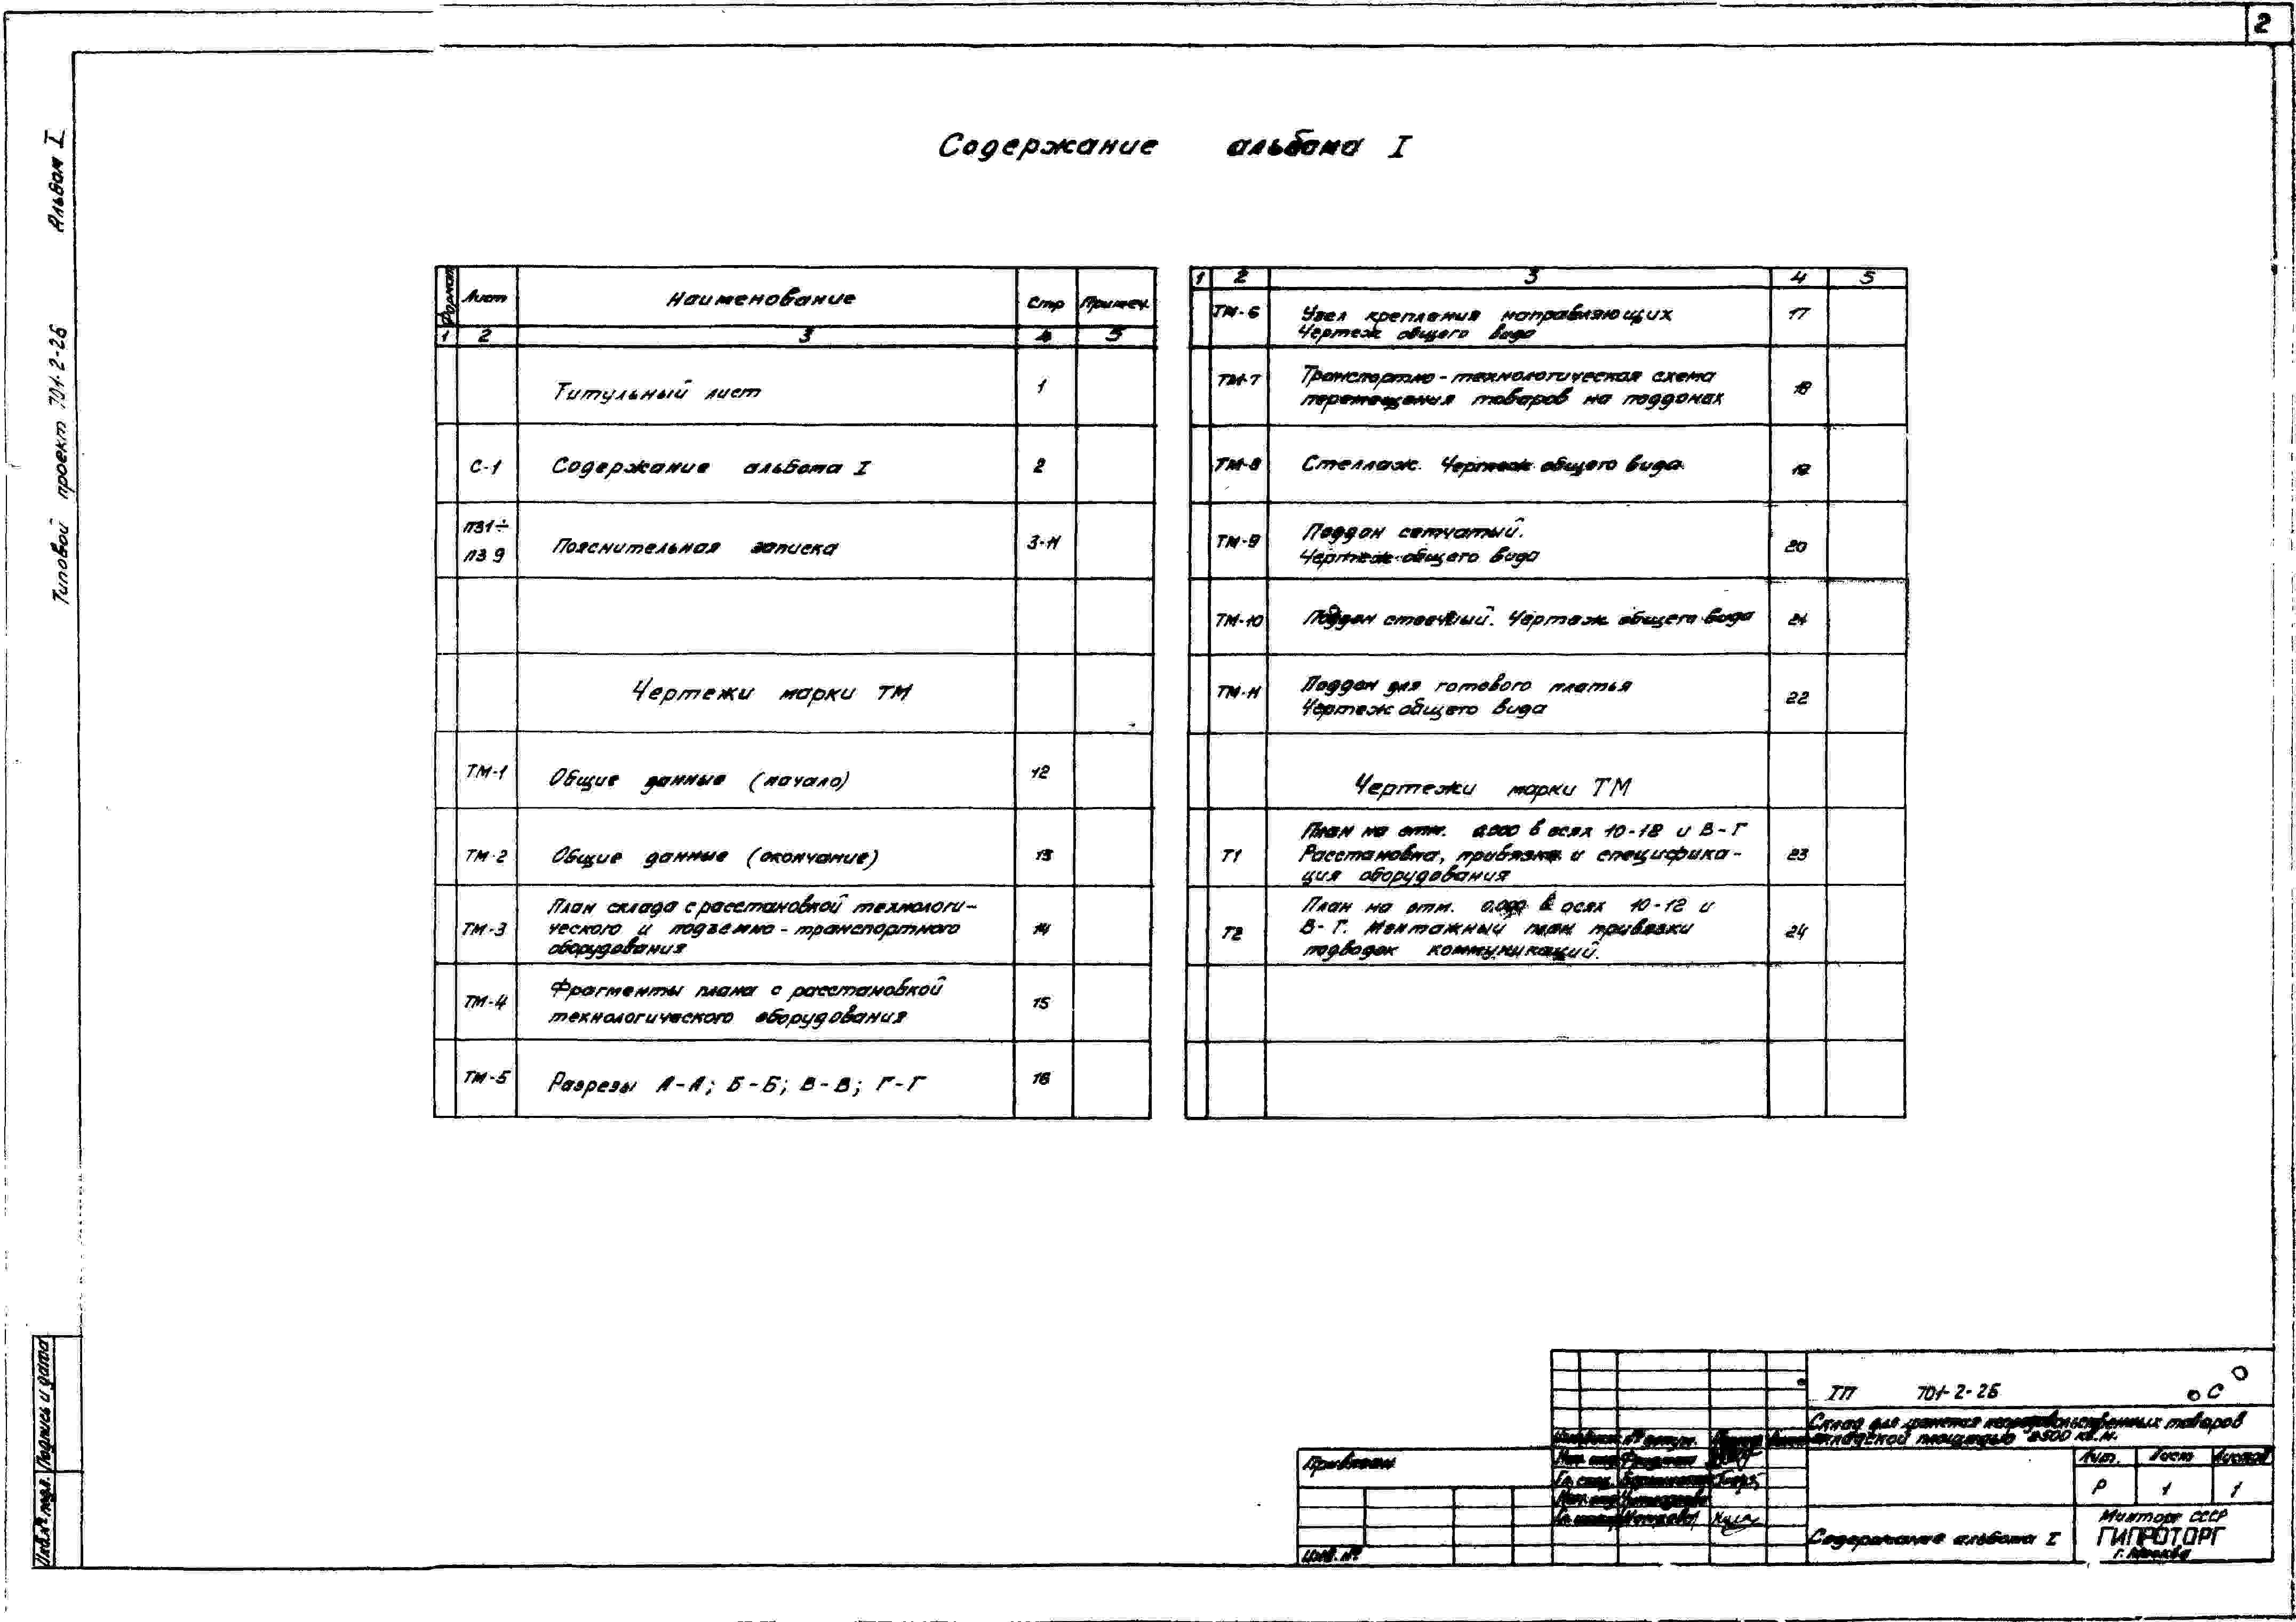 2
Альбом I
Типовой проект 701-2-26
Содержание альбома I
Формат Лист Наименование Стр Примеч.
1 2 3 4 5
Титульный лист 1
С-1 Содержание альбома I 2
ПЗ1÷
ПЗ 9 Пояснительная записка 3-11
Чертежи марки ТМ
ТМ-1 Общие данные (начало) 12
ТМ-2 Общие данные (окончание) 13
План склада с расстановкой технологи-
ТМ-3 ческого и подъемно-транспортного 14
оборудования
Фрагменты плана с расстановкой
ТМ-4 технологического оборудования 15
ТМ-5 Разрезы А-А; Б-Б; В-В; Г-Г 16
1 2 3 4 5
ТМ-6 Узел крепления направляющих 17
Чертеж общего вида
ТМ-7 Транспортно-технологическая схема
перемещения товаров на поддонах 18
ТМ-8 Стеллаж. Чертеж общего вида 19
ТМ-9 Поддон сетчатый.
Чертеж общего вида 20
ТМ-10 Поддон стоечный. Чертеж общего вида 21
ТМ-11 Поддон для готового платья
Чертеж общего вида 22
Чертежи марки ТМ
План на отм. 0.000 в осях 10-12 и В-Г
Т1 Расстановка, привязка и специфика- 23
ция оборудования
План на отм. 0.000 в осях 10-12 и
Т2 В-Г. Монтажный план привязки 24
подводок коммуникаций.
Подпись и дата
Инв.№ подл.
Привязан
Инв. №
ТП 701-2-26 С
Склад для непродовольственных товаров
складской площадью 2500 кв.м.
Лит. Лист Листов
Р 1 1
Содержание альбома I
Минторг СССР
ГИПРОТОРГ
г. Москва